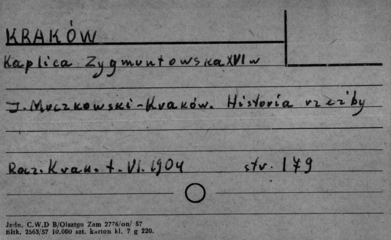 KRAKÓW
Kaplica Zygmuntowska XVI w
J. Muczkowski - Kraków. Historia rzeźby
Rocz. Krak. t. VI. 1904 str. 179
Jedn. C.W.D B/Olsztyn Zam 2776/on/ 57
Bltk. 2563/57 10.000 szt. karton kl. 7 g 220.